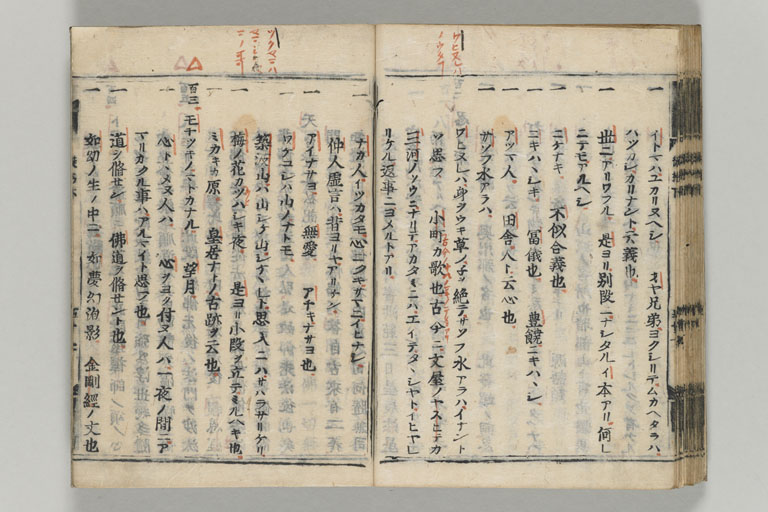 イトマハユカリヌヘシ オヤ兄弟ヨクシリテムカヘタラハ
ハツカシカリナント云義也
一 世ニアリワフル 是ヨリ別段ニナシタルイ本アリ何レ
ニテモアルヘシ
一 ニケナキ 不似合義也
一 ニキハヽシキ 冨儀也 豊饒ニキハヽシ
一 アツマ人 云田舎人ト云心也
一 サソフ水アラハ
ワヒヌレハ身ヲウキ草ノネヲ絶テサソフ水アラハイナント
ソ思フ 小町カ歌也古今ニ文屋ノヤスヒテカ
三河ノソウニナリテアカタミニハエイテタヽシヤトイヒヤレ
リケル返事ニヨメルトアリ
一 ナカ人イツカタモ心ニクキサマニイヒナシ
仲人虚言ハ昔ヨリヤアリケン
一 アイナサヨ 無愛 アチキナサヨ也
一 ワケコシハ山ノナトモ
筑波山ハ山シケ山シケヽレト思入ニハサハラサリケリ
一 梅ノ花カウハシキ夜 是ヨリ小段ヲ立テミルヘキ也
一 ミカキカ原 皇居ナトノ古跡ヲ云也
百三 モチツキノマトカナル 望月
一 心トヽメヌ人ハ 心ヲヨク付ヌ人ハ一夜ノ間ニア
マリカクル事ハアルマイト思フ也
一 道ヲ脩セン 佛道ヲ脩セント也
一 如幻ノ生ノ中ニ 如夢幻泡影 金剛經ノ文也